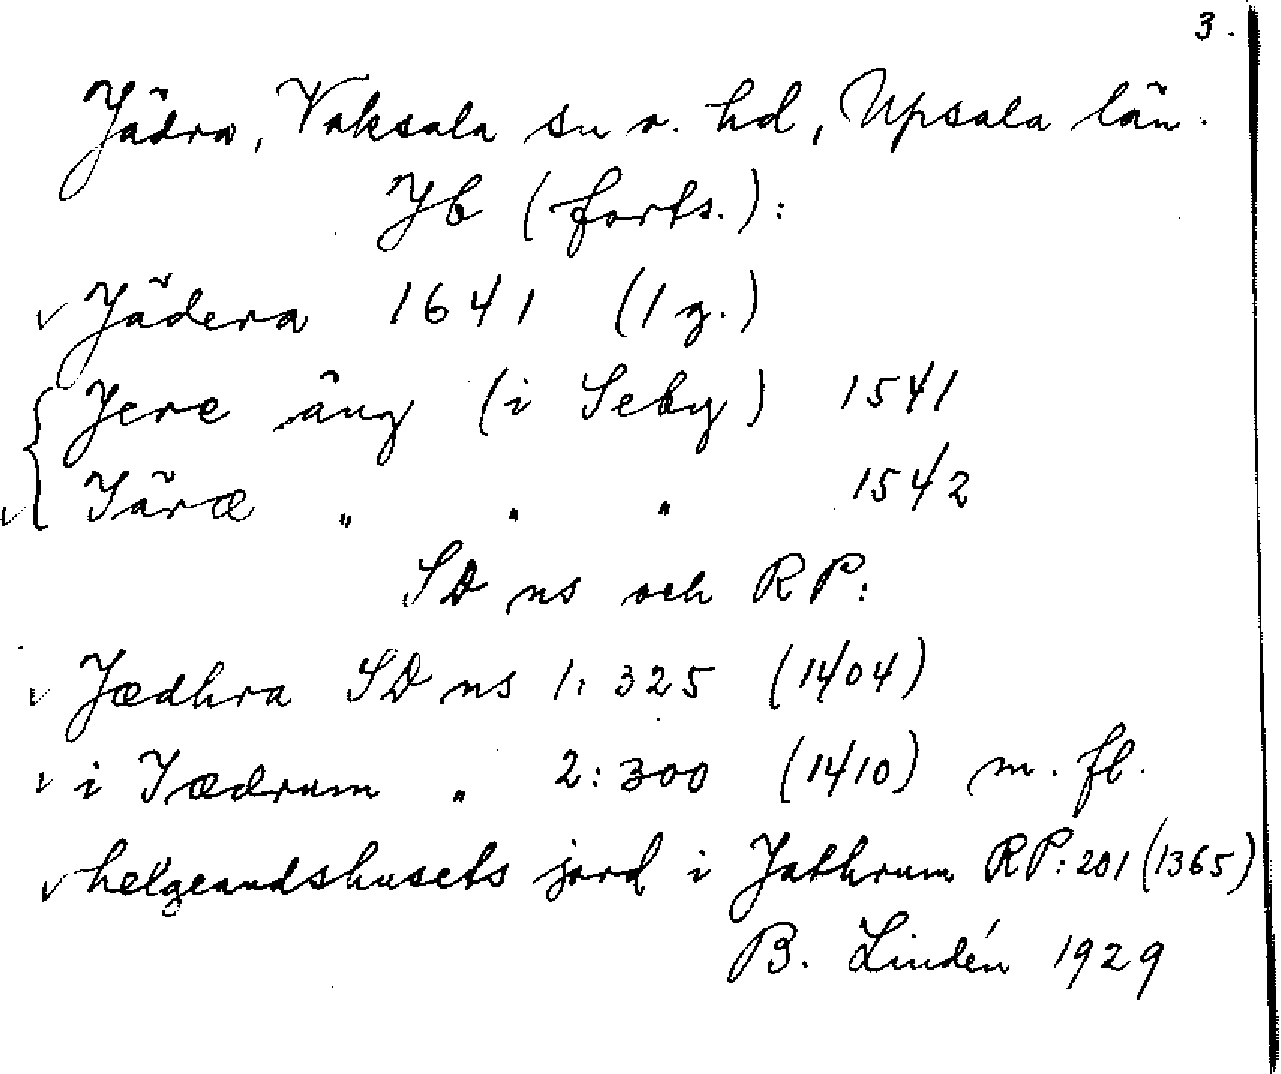 3.
Jädra, Vaksala sn o. hd, Upsala län.
Jb (forts.):
v Jädera 1641 (1 g.)
Jere äng (i Seby) 1541
v Järæ " " " 1542
SD ns och RP:
v Jædhra SD ns 1:325 (1404)
v i Jædrum " 2:300 (1410) m. fl.
v helgeandshusets jord i Jathrum RP:201 (1365)
B. Lindén 1929